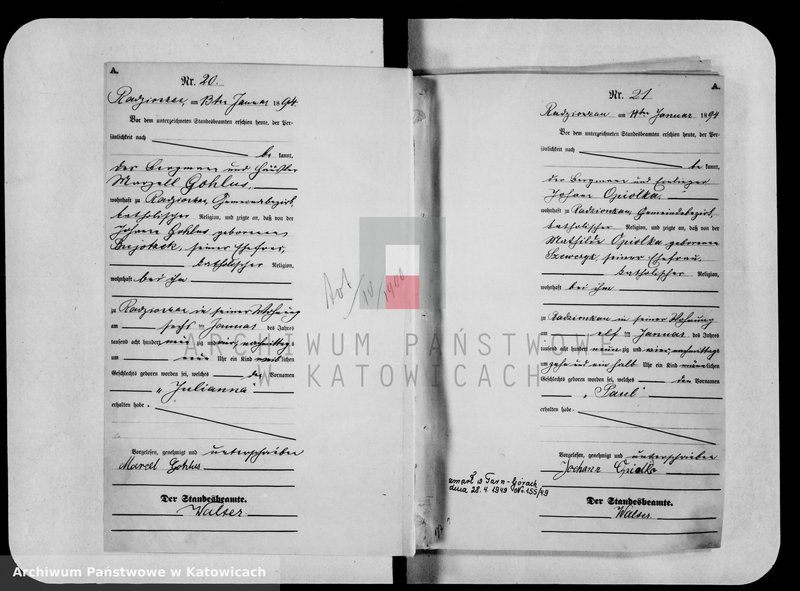 A.
Nr. 20.
Radzionkau, am 13ten Januar 1894
Vor dem unterzeichneten Standesbeamten erschien heute, der Per-
sönlichkeit nach
be kannt,
der Bergmann und Häusler
Marzell Gohlus,
wohnhaft zu Radzionkau, Gemeindebezirk,
katholischer Religion, und zeigte an, daß von der
Johanna Gohlus geborenen
seiner Ehefrau,
katholischer Religion,
wohnhaft bei ihm
zu Radzionkau in seiner Wohnung
am sechs ten Januar des Jahres
tausend acht hundert neun zig und vier, nachmittags
um Uhr ein Kind weiblichen
Geschlechts geboren worden sei, welches den Vornamen
"Julianna"
erhalten habe.
Vorgelesen, genehmigt und unterschrieben
Marcel Gohlus
Der Standesbeamte.
Walser
A.
Nr. 21
Radzionkau am 14ten Januar 1894
Vor dem unterzeichneten Standesbeamten erschien heute, der Per-
sönlichkeit nach
be kannt,
der Bergmann und Einlieger
Johann Opiolka,
wohnhaft zu Radzionkau, Gemeindebezirk,
katholischer Religion, und zeigte an, daß von der
Mathilde Opiolka geborenen
seiner Ehefrau,
katholischer Religion,
wohnhaft bei ihm
zu Radzionkau in seiner Wohnung
am elf ten Januar des Jahres
tausend acht hundert neun zig und vier, nachmittags
um ein halb Uhr ein Kind männlichen
Geschlechts geboren worden sei, welches den Vornamen
"Paul"
erhalten habe.
Vorgelesen, genehmigt und unterschrieben
Johann Opiolka
zmarł w Tarn-Górach
dnia 28.4 1949 Nr. 155/49
Der Standesbeamte.
Walser
ARCHIWUM PAŃSTWOWE
W KATOWICACH
Archiwum Państwowe w Katowicach